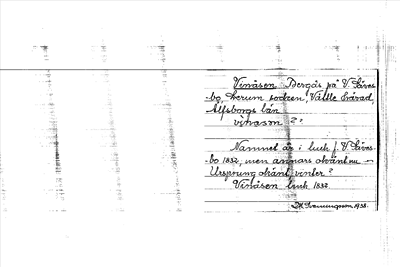 Vinåsen Bergås på V. Säves-
bo, Lerum socken, Vättle härad,
Älfsborgs län
vinåsən ??
Namnet är i bruk f. V. Säves-
bo 1832, men annars okänt nu —
Ursprung okänt, vinter?
Vinåsen bruk 1832
D. H. Svenungsson, 1938.